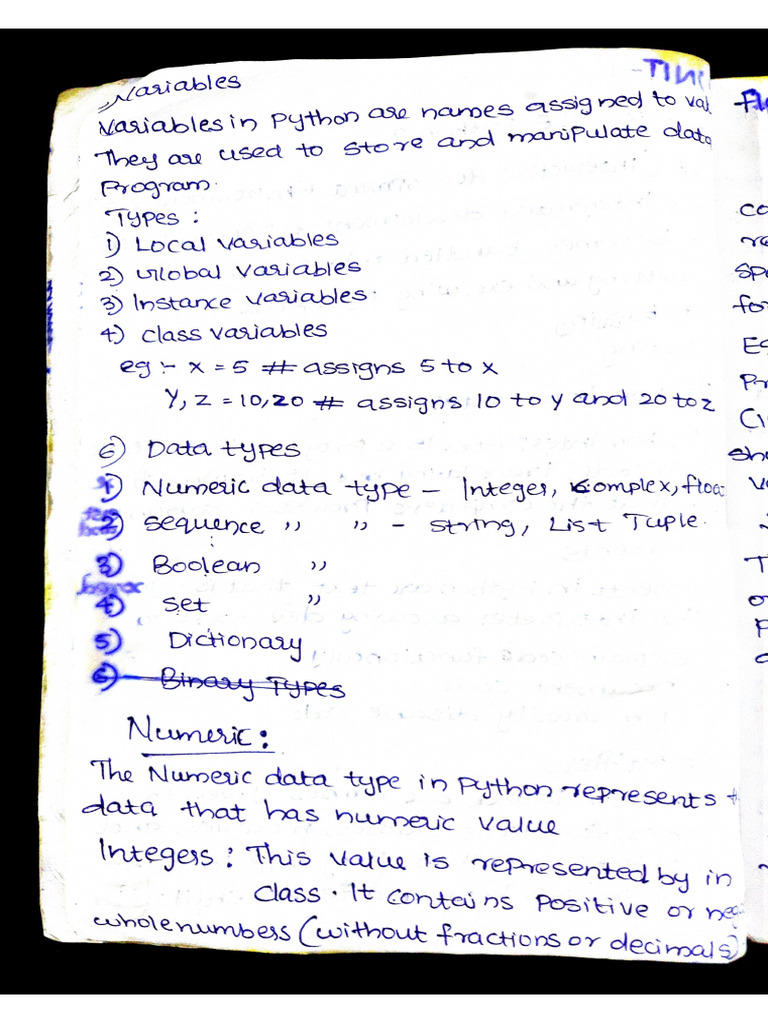 Variables
Variables in Python are names assigned to val
They are used to store and manipulate data
Program.
Types :
1) Local variables
2) Global variables
3) Instance variables.
4) class variables
eg :- x = 5 # assigns 5 to x
Y, Z = 10,20 # assigns 10 to y and 20 to z
6) Data types
1) Numeric data type - Integer, complex, floa
2) sequence ,, ,, - string, List Tuple.
3) Boolean ,,
4) set ,,
5) Dictionary
6) Binary Types
Numeric:
The Numeric data type in Python represents t
data that has numeric value
Integers : This value is represented by in
class. It contains positive or neg
whole numbers (without fractions or decimals)
co
re
spe
for
Eg
Pr
sho
T
or
P